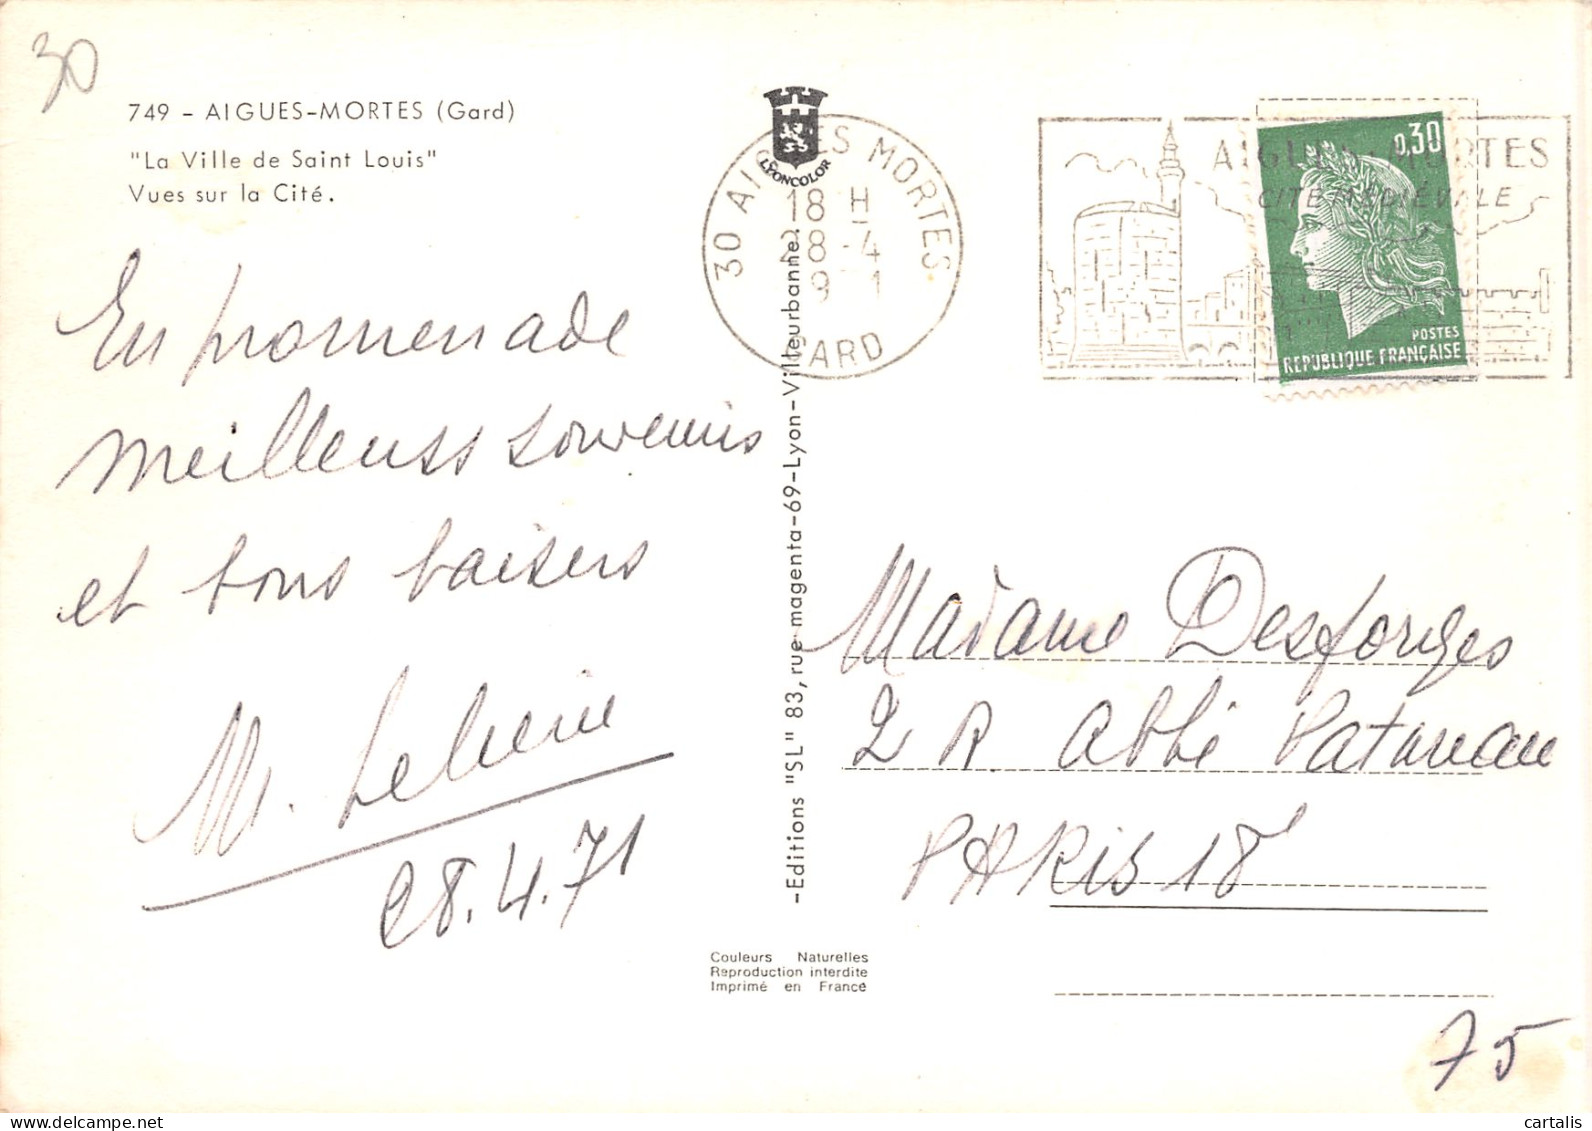 30
749 - AIGUES-MORTES (Gard)
"La Ville de Saint Louis"
Vues sur la Cité.
En promenade
meilleurs souvenirs
et bons baisers
28.4.71
LYONCOLOR
30 AIGUES MORTES
18 H
28-4
GARD
AIGUES-MORTES
CITE MEDIÉVALE
0,30
POSTES
REPUBLIQUE FRANÇAISE
-Editions "SL" 83, rue magenta-69-Lyon-Villeurbanne
Madame Desforges
2 R Abbé Patureau
PARIS 18e
Couleurs Naturelles
Reproduction interdite
Imprimé en France
75
cartalis